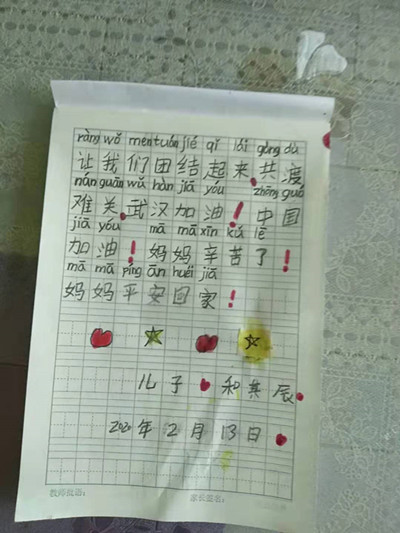 ràng wǒ men tuán jié qǐ lái gòng dù
让我们团结起来,共渡
nán guān wǔ hàn jiā yóu zhōng guó
难关,武汉加油！中国
jiā yóu mā mā xīn kǔ lē
加油！妈妈辛苦了！
mā mā píng ān huéi jiā
妈妈平安回家！
儿子 和其辰
2020年2月13日
教师批语： 家长签名：